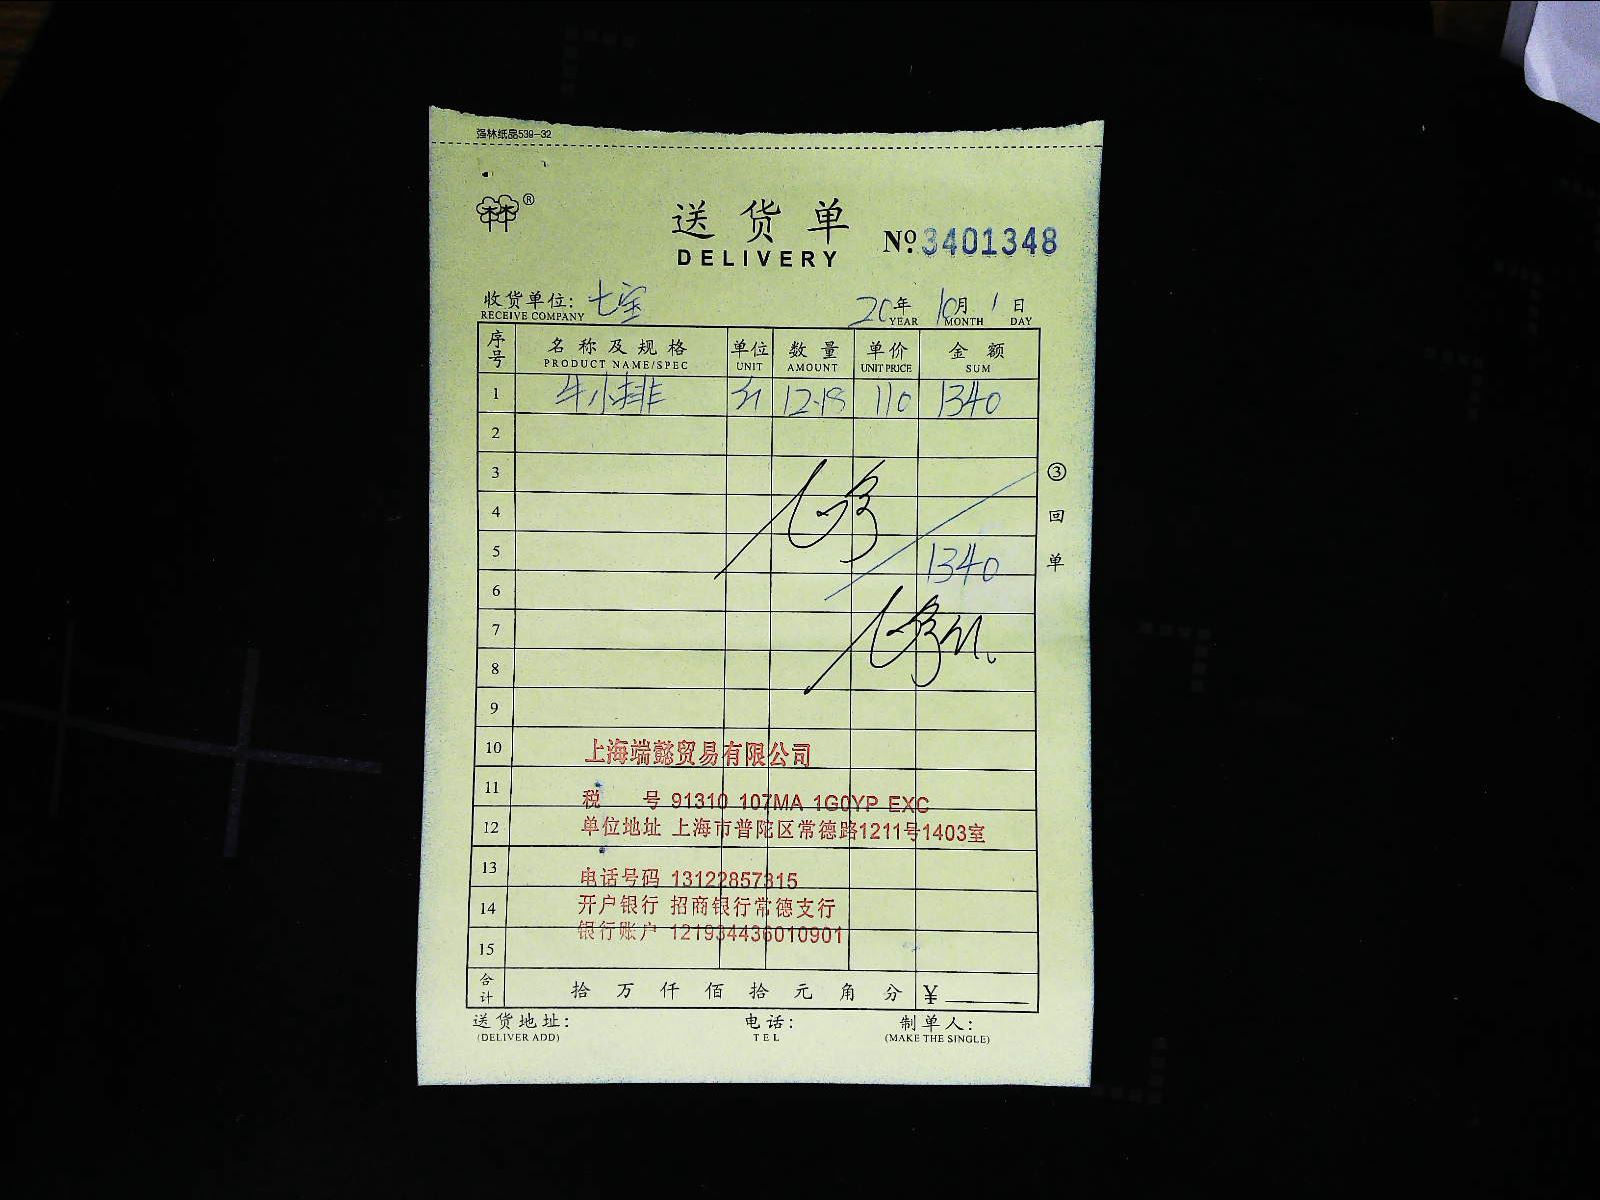 强林纸品539-32
林®
送货单
DELIVERY
№ 3401348
收货单位: 七宝 20年 10月 1日
RECEIVE COMPANY YEAR MONTH DAY
序号 名称及规格 单位 数量 单价 金额
PRODUCT NAME/SPEC UNIT AMOUNT UNIT PRICE SUM
1 牛小排 12.18 110 1340
2
3
4
5 1340
6
7
8
9
10 上海端懿贸易有限公司
11 税 号 91310 107MA 1G0YP EXC
12 单位地址 上海市普陀区常德路1211号1403室
13 电话号码 13122857315
14 开户银行 招商银行常德支行
15 银行账户 121934436010901
合计 拾 万 仟 佰 拾 元 角 分 ¥
送货地址: 电话: 制单人:
(DELIVER ADD) TEL (MAKE THE SINGLE)
③回单